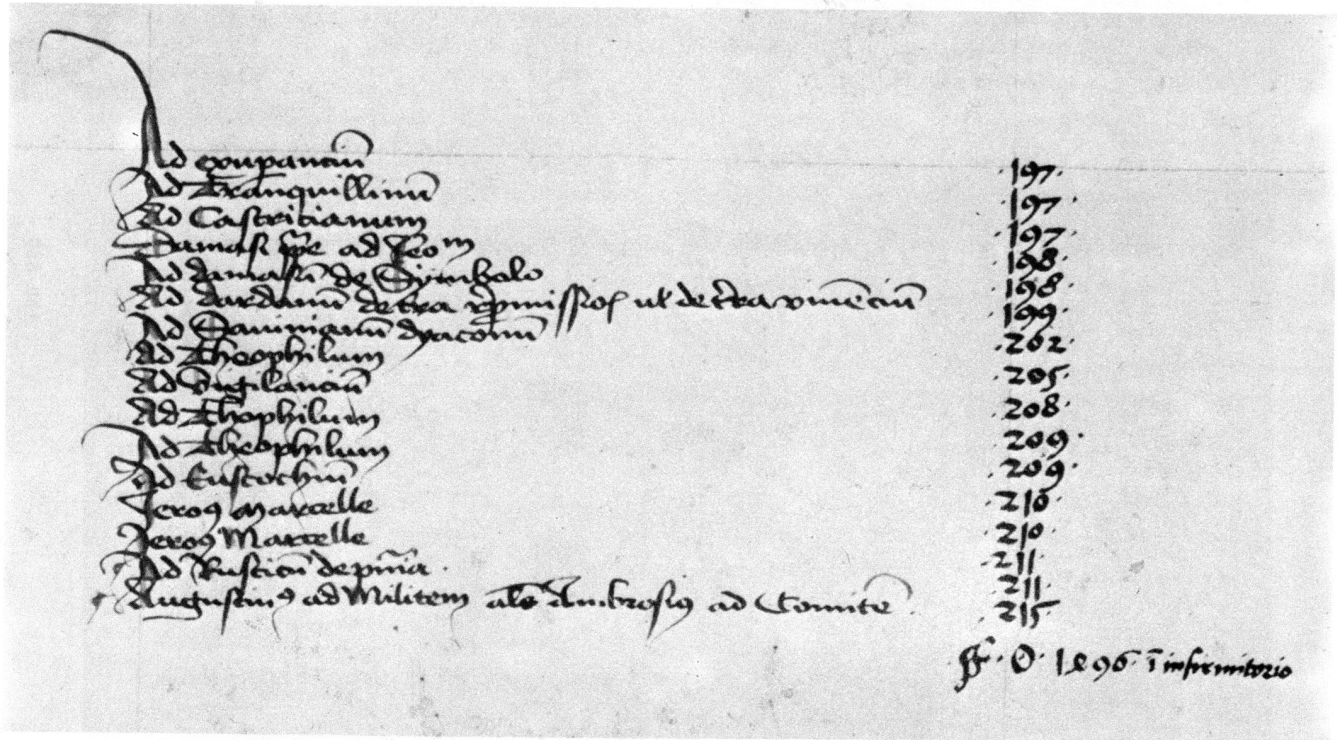 Ad exupanciū .197.
Ad Tranquillinū .197.
Ad Castricianum .197.
Damasi ꝑpe ad Jeoᵐ .198.
Ad damasū de Symbolo .198.
Ad dardanū de t̄ra rep̄missiōꝭ ul de t̄ra viuēciū .199.
Ad Sauinianū dyaconū .202.
Ad Theophilum .205.
Ad Vigilanciū .208.
Ad Thophilum .209.
Ad Theophilum .209.
Ad Eustochiū .210.
Jeroꝰ Marcelle .210.
Jeroꝰ Marcelle .211.
Ad Rusticū de pn̄ia . .211.
Augustinꝰ ad Militem al̄s Ambrosiꝰ ad Comitē .215.
O. 1496 ī infirmitorio